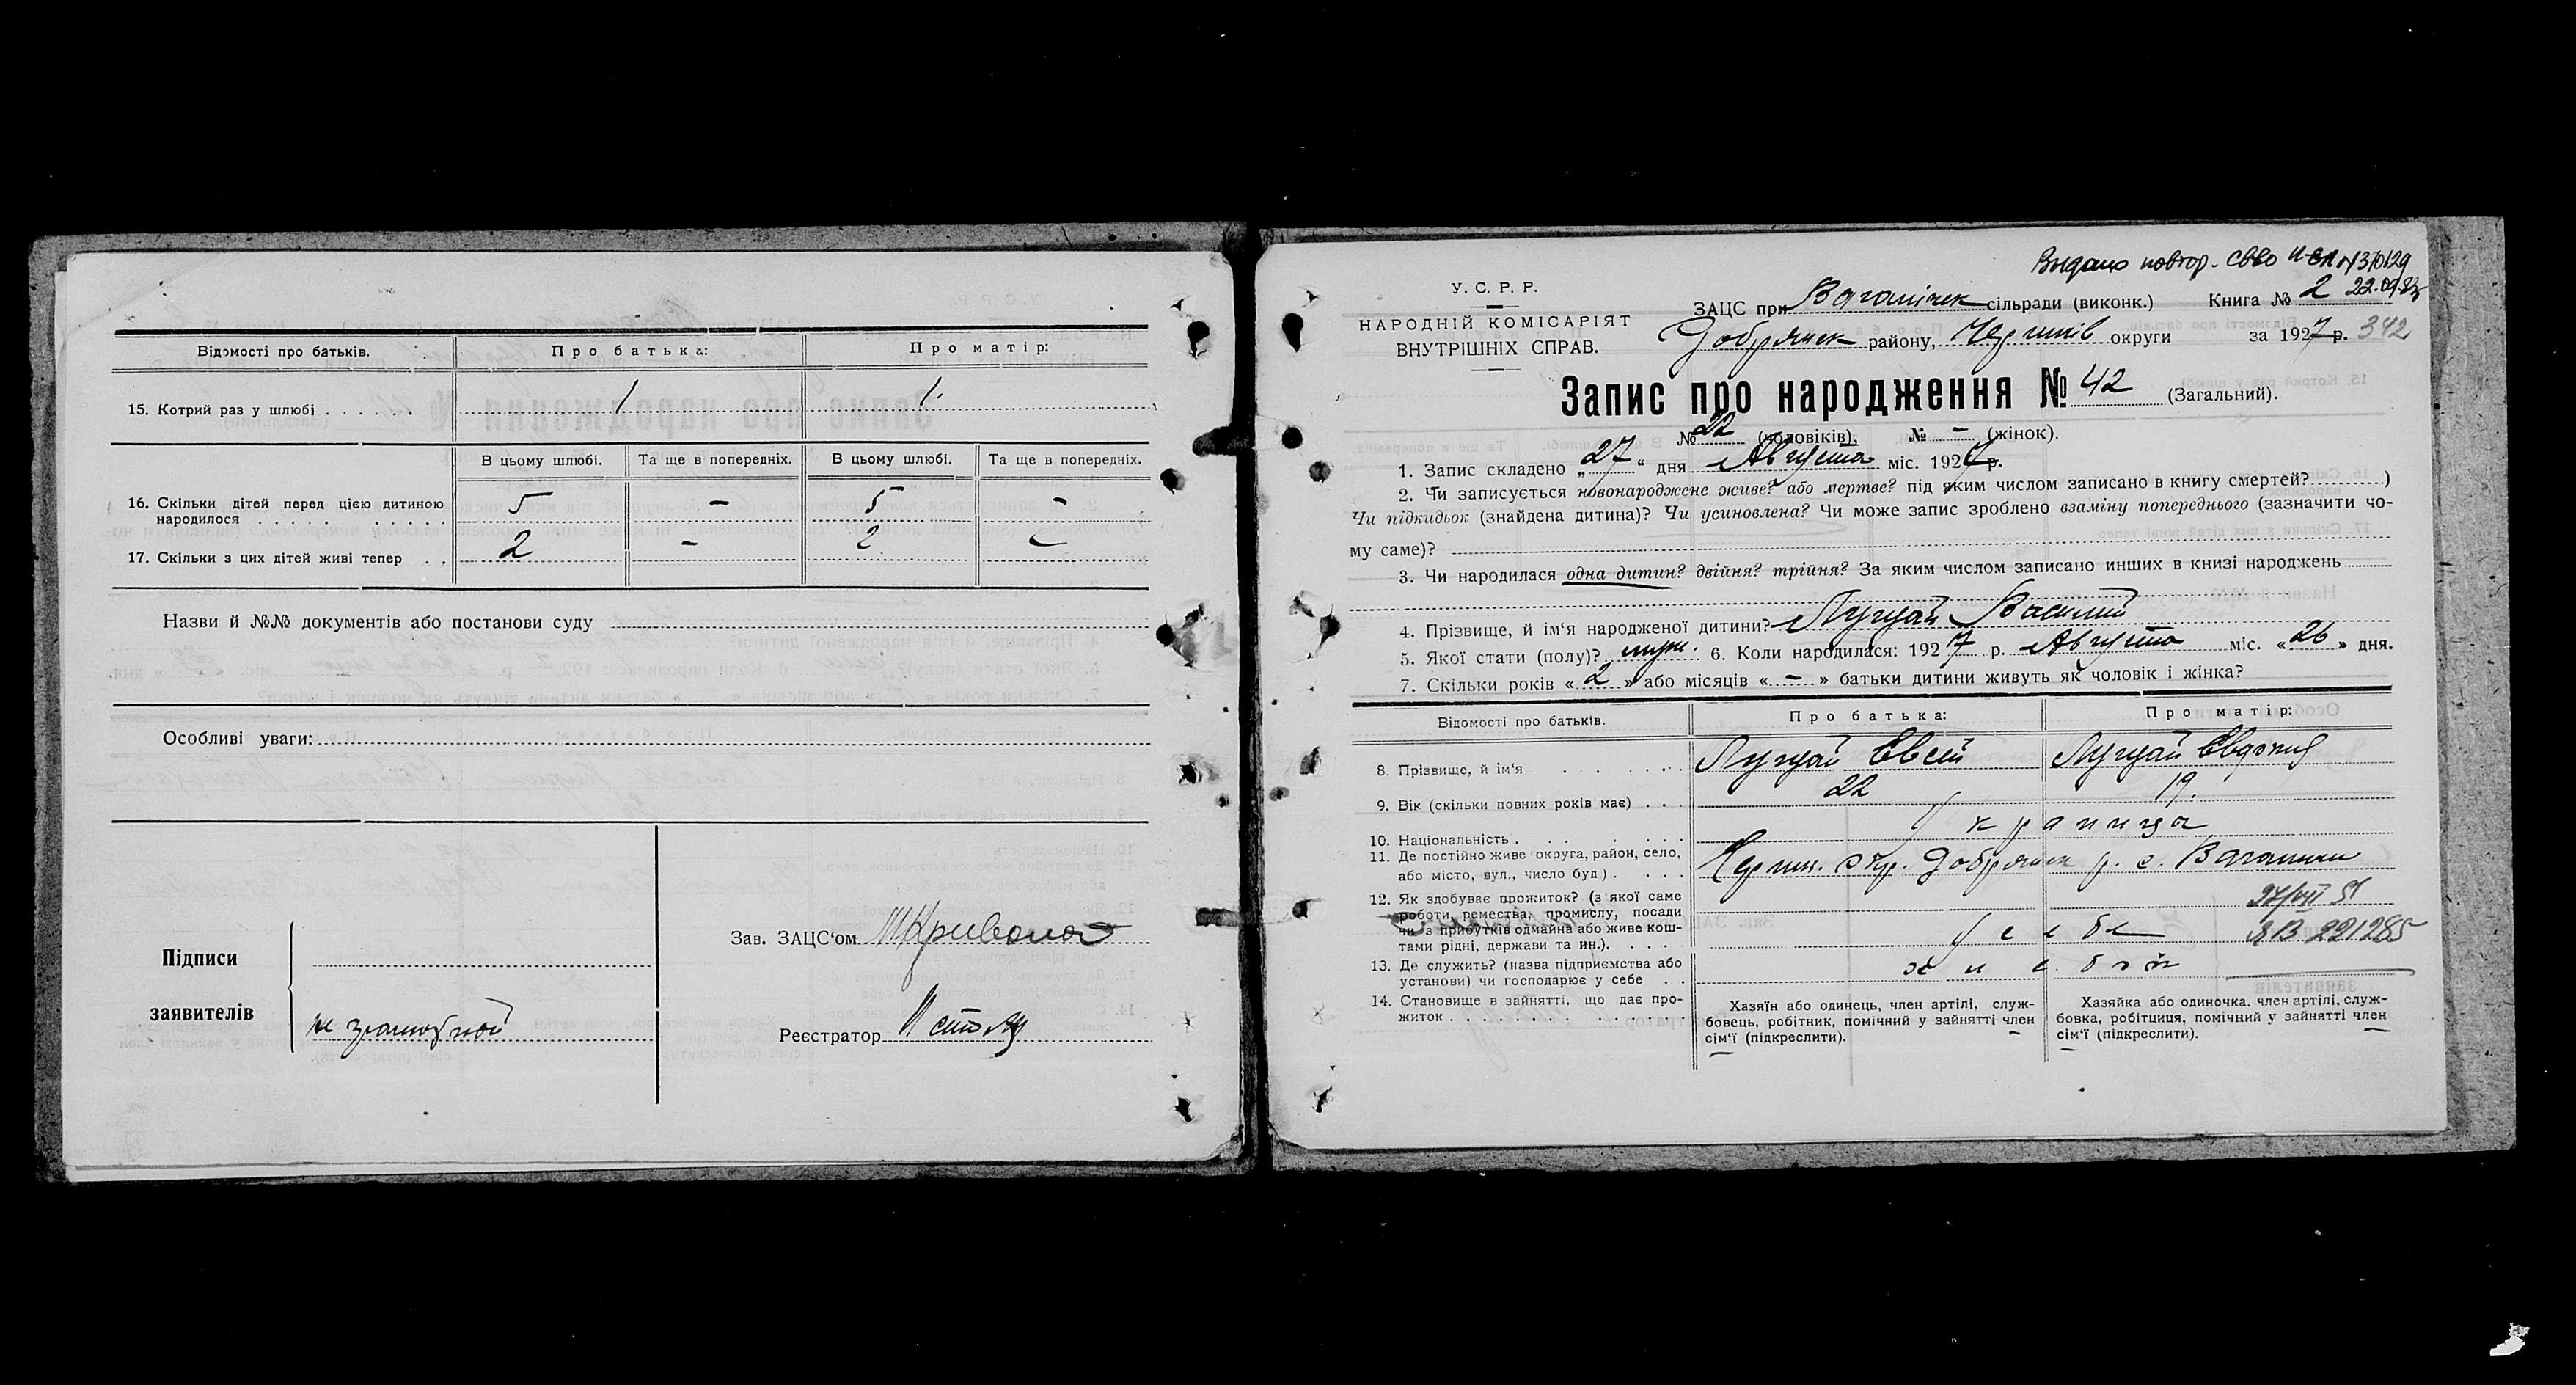 Відомості про батьків.
Про батька:
Про матір:
15. Котрий раз у шлюбі . . . . . .
1
1
В цьому шлюбі.
Та ще в попередніх.
В цьому шлюбі.
Та ще в попередніх.
16. Скільки дітей перед цією дитиною
народилося . . . . . . . . . .
5
-
5
-
17. Скільки з цих дітей живі тепер . .
2
-
2
-
Назви й №№ документів або постанови суду
Особливі уваги:
Підписи
заявителів
Зав. ЗАЦС'ом
Реєстратор
Выдано повтор. св-во
У. С. Р. Р.
НАРОДНІЙ КОМІСАРІЯТ
ВНУТРІШНІХ СПРАВ.
ЗАЦС при сільради (виконк.) Книга № 2 22.09.
Добрянск району, Чернигів округи за 1927 р. 342
Запис про народження № 42 (Загальний).
№ 22 (чоловіків), № - (жінок).
1. Запис складено „27" дня Августа міс. 1927 р.
2. Чи записується новонароджене живе? або мертве? під яким числом записано в книгу смертей? )
Чи підкидьок (знайдена дитина)? Чи усиновлена? Чи може запис зроблено взаміну попереднього (зазначити чо-
му саме)?
3. Чи народилася одна дитин? двійня? трійня? За яким числом записано инших в книзі народжень
4. Прізвище, й ім'я народженої дитини? Василий
5. Якої стати (полу)? муж. 6. Коли народилася: 1927 р. Августа міс. «26» дня.
7. Скільки років «2» або місяців «-» батьки дитини живуть як чоловік і жінка?
Відомості про батьків.
Про батька:
Про матір:
8. Прізвище, й ім'я . . . . . .
Евсей
Евдокия
9. Вік (скільки повних років має) . . .
22
19.
10. Національність . . . . . . .
Украинца
11. Де постійно живе округа, район, село,
або місто, вул., число буд) . . . .
Черниг. окр. Добрянск р. с.
12. Як здобуває прожиток? (з якої саме
роботи, ремества, промислу, посади
чи з прибутків одмайна або живе кош-
тами рідні, держави та ин.). . . . .
27/VII 51
у себе
ЯВ 221285
13. Де служить? (назва підприємства або
установи) чи господарює у себе . .
14. Становище в зайнятті, що дає про-
житок . . . . . . . . . . . .
Хазяїн або одинець, член артілі, служ-
бовець, робітник, помічний у зайнятті член
сім'ї (підкреслити).
Хазяйка або одиночка, член артілі, служ-
бовка, робітциця, помічний у зайнятті член
сім'ї (підкреслити).